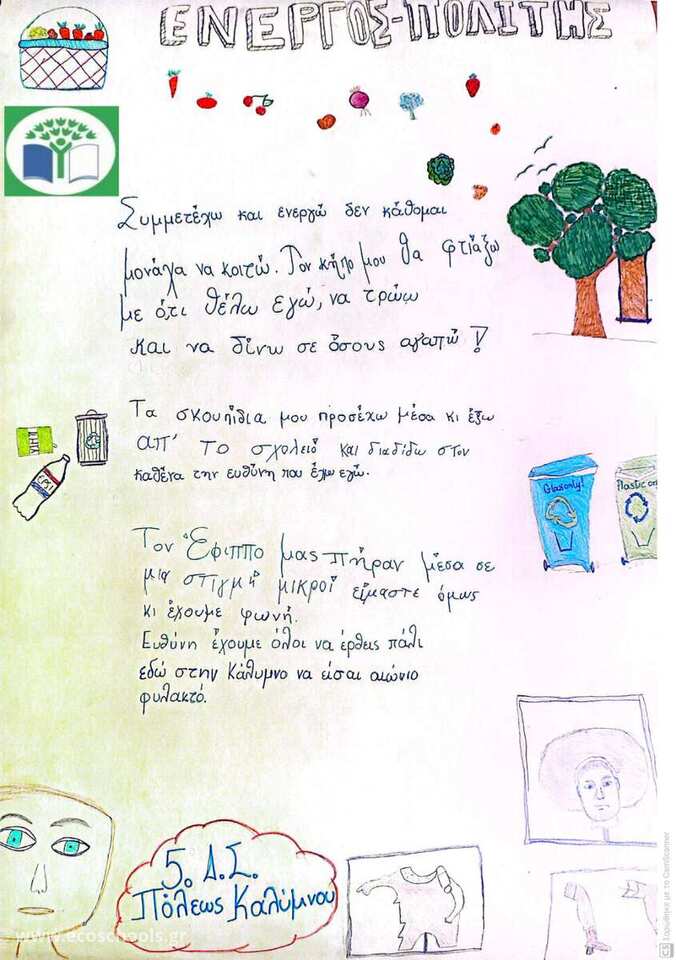 ΕΝΕΡΓΟΣ-ΠΟΛΙΤΗΣ
Συμμετέχω και ενεργώ δεν κάθομαι
μονάχα να κοιτώ. Τον κήπο μου θα φτιάξω
με ότι θέλω εγώ, να τρώω
και να δίνω σε όσους αγαπώ!
Τα σκουπίδια μου προσέχω μέσα κι έξω
απ' το σχολειό και διαδίδω στον
καθένα την ευθύνη που έχω εγώ.
Glass only!
Plastic on
Τον Έφιππο μας πήραν μέσα σε
μια στιγμή μικροί είμαστε όμως
κι έχουμε φωνή.
Ευθύνη έχουμε όλοι να έρθεις πάλι
εδώ στην Κάλυμνο να είσαι αιώνιο
φυλακτό.
5ο Δ.Σ.
Πόλεως Καλύμνου
www.ecoschools.gr
CS Σαρώθηκε με το CamScanner